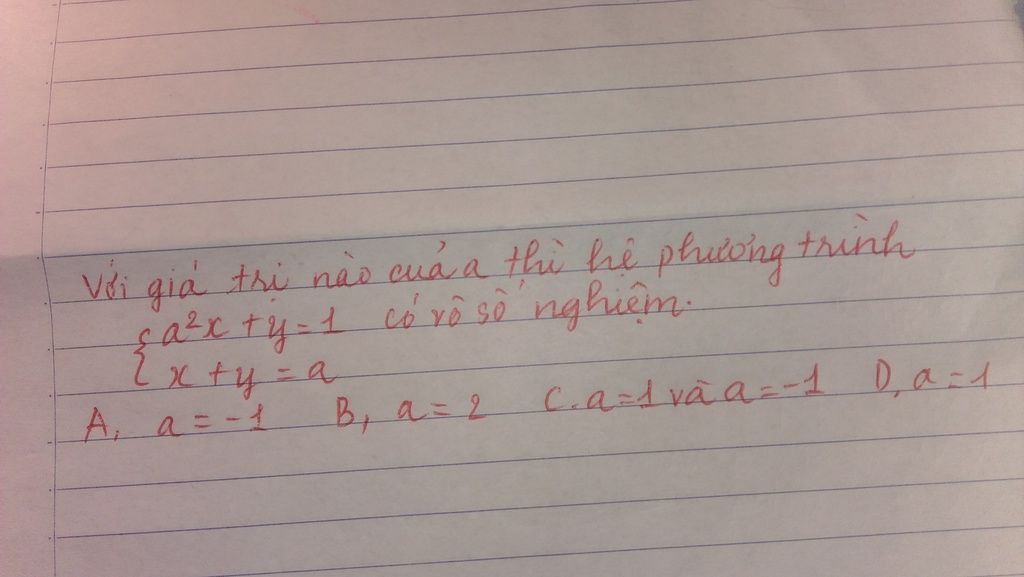 Với giá trị nào cuả a thì hệ phương trình
{ a²x + y = 1 có vô số nghiệm.
{ x + y = a
A, a = -1 B, a = 2 C. a=1 và a = -1 D, a = 1